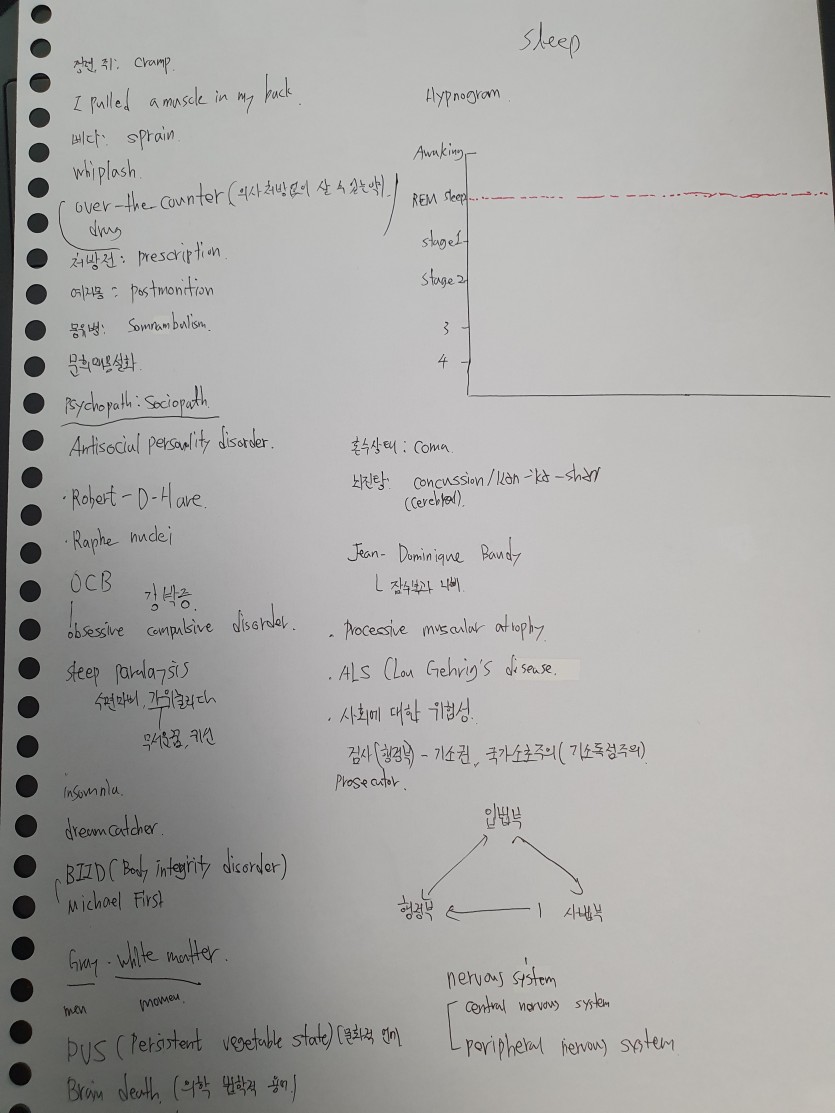 sleep
경련, 쥐: cramp.
I pulled a muscle in my back.
삐다: sprain.
whiplash.
over-the counter (의사처방없이 살 수 있는약).
drug
처방전: prescription.
예지몽: postmonition
몽유병: Somnambulism.
문희매몽설화.
Psychopath: Sociopath.
Antisocial personality disorder.
· Robert-D-Hare.
· Raphe nuclei
OCB 강박증.
obsessive compulsive disorder.
sleep paralysis
수면마비, 가위눌리다
무서운꿈, 귀신
insomnia.
dreamcatcher.
BIID (Body integrity disorder)
Michael First
Gray - white matter.
men women.
PVS (Persistent vegetable state) (문화적 언어)
Brain death. (의학 법학적 용어.)
Hypnogram.
Awaking
REM sleep
stage 1
stage 2
3
4
혼수상태: coma.
뇌진탈: concussion/kən-'kə-shən
(cerebral).
Jean-Dominique Baudy
잠수복과 나비.
· Processive muscular atrophy.
· ALS (Lou Gehrig's disease.
· 사회에 대한 위험성.
검사(행정부) - 기소권, 국가소추주의(기소독점주의)
Prosecutor.
입법부
행정부 사법부
nervous system
central nervous system
peripheral nervous system